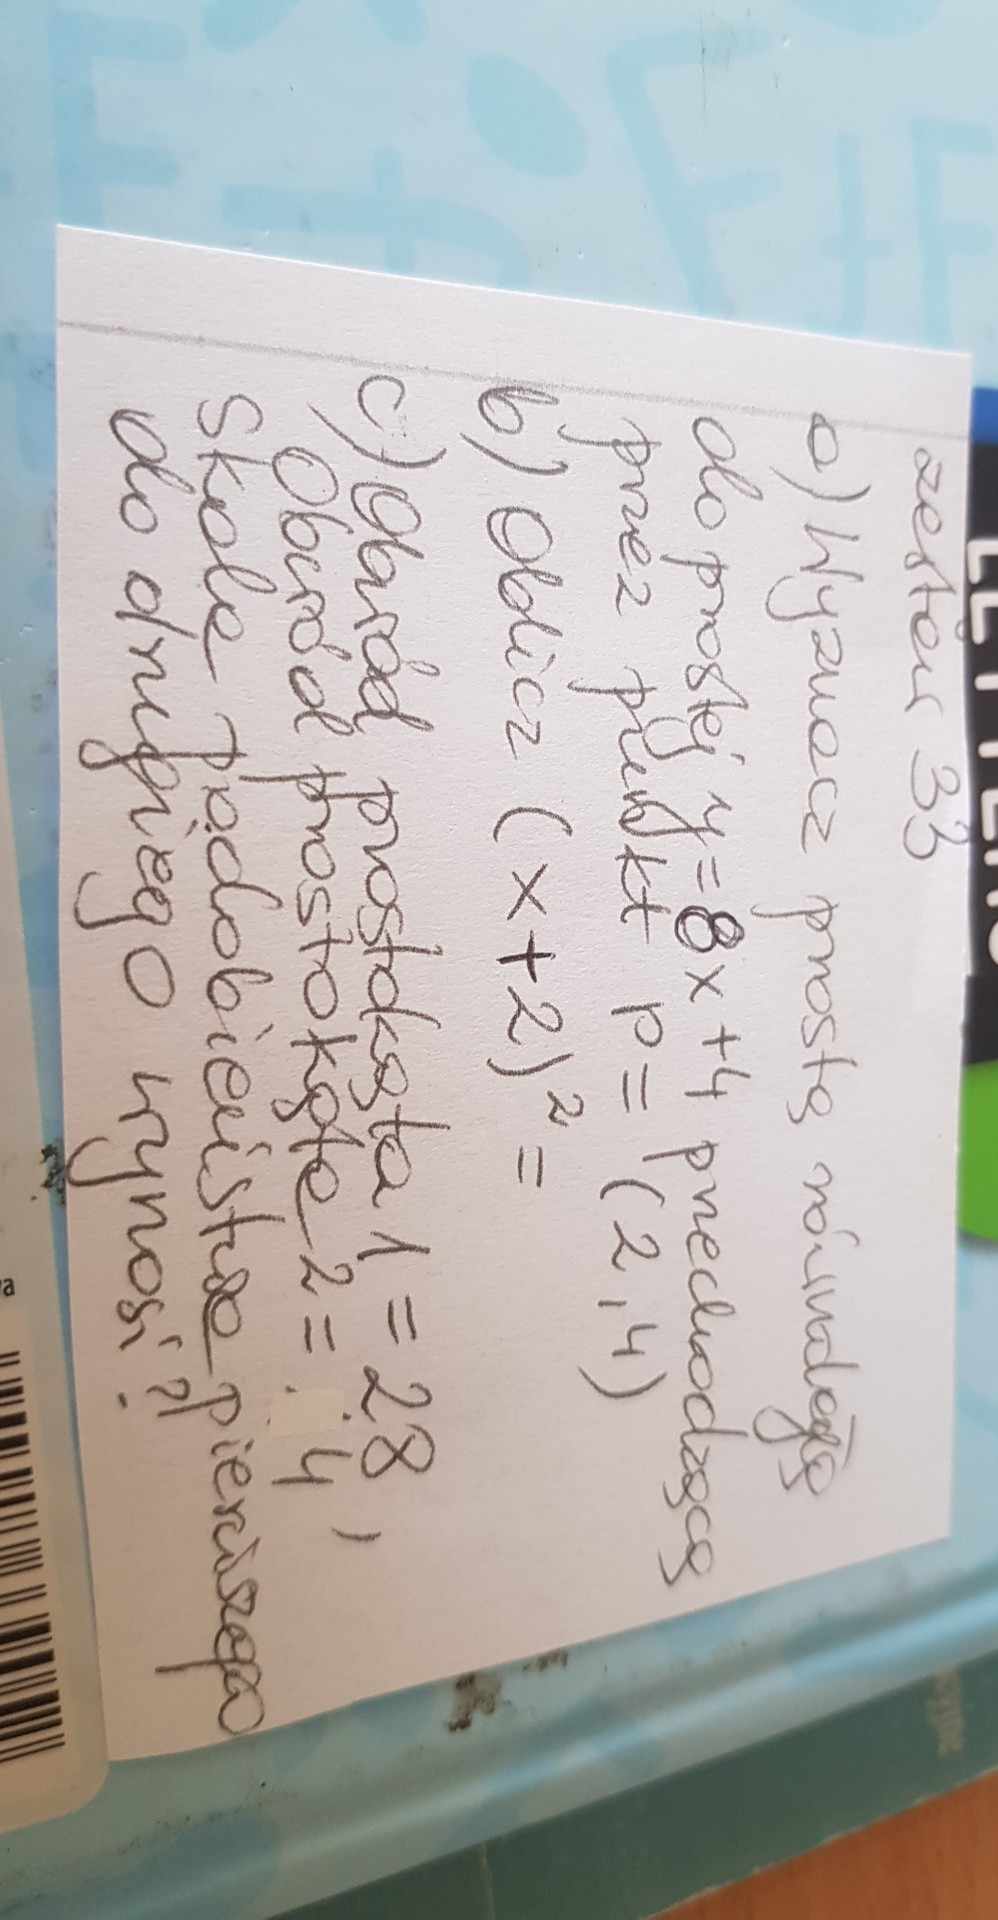 LETTERS
zestaw 33
a) Wyznacz prostą równoległą
do prostej y=8x+4 przechodzącą
przez punkt P= (2,4)
b) Oblicz (x+2)²=
c) Obwód prostokąta 1 = 28,
Obwód prostokąta 2 = 4
Skala podobieństwa pierwszego
do drugiego wynosi?